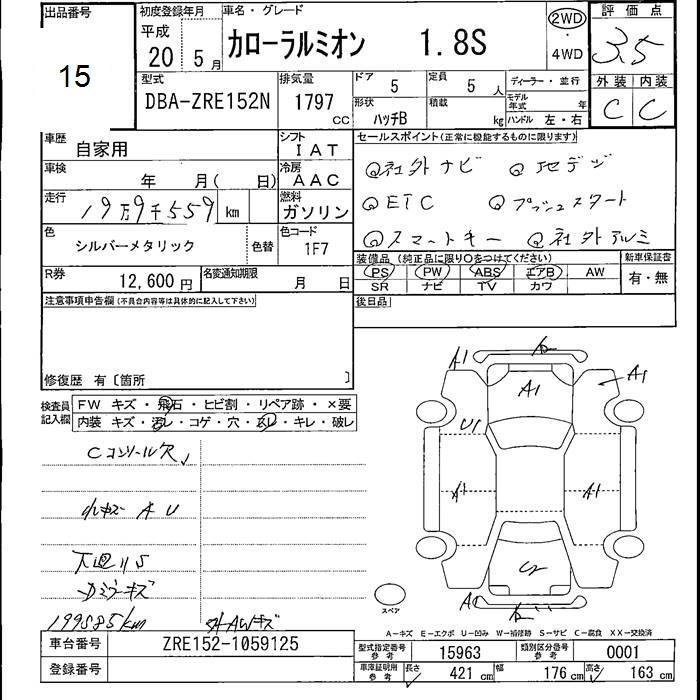 出品番号
15
初度登録年月
平成
20 5月
車名・グレード
カローラルミオン 1.8S
2WD
・
4WD
評価点
3.5
外装 内装
C C
型式
DBA-ZRE152N
排気量
1797 CC
ドア 5
定員 5人
形状 ハッチB
積載 kg
ディーラー・並行
モデル年式 年
ハンドル 左・右
車歴 自家用
シフト IAT
車検 年 月( 日)
冷房 AAC
走行 19万9千559 km
燃料 ガソリン
色 シルバーメタリック
色替
色コード 1F7
R券 12,600円
名変通知期限 月 日
セールスポイント(正常に機能するものに限ります)
◎社外ナビ ◎地デジ
◎ETC ◎プッシュスタート
◎スマートキー ◎社外アルミ
装備品(純正品に限り○をつけてください)
新車保証書
PS PW ABS エアB AW
SR ナビ TV カワ
有・無
後日品
注意事項申告欄(不具合内容等は具体的に記入して下さい)
修復歴 有〔箇所 〕
検査員記入欄
FW キズ・飛石・ヒビ割・リペア跡・×要
内装 キズ・汚レ・コゲ・穴・スレ・キレ・破レ
Cコンソール穴
小キズ A U
下廻りS
199585km
外AWキズ
A1
A1
A1
U1
A1
A1
スペア
A-キズ E-エクボ U-凹み W-補修跡 S-サビ C-腐食 XX-交換済
車台番号 ZRE152-1059125
登録番号
型式指定番号参考 15963
類別区分番号参考 0001
車庫証明用参考
長さ 421cm
幅 176cm
高さ 163cm